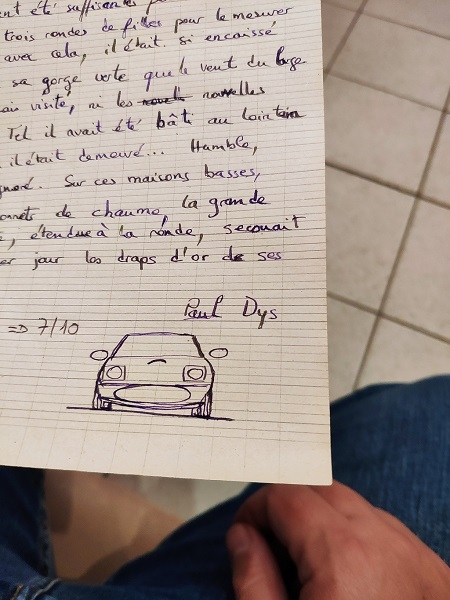 ent été suffisantes p
trois rondes de filles pour le mesurer
avec cela, il était si encaissé
sa gorge verte que le vent du large
ais visité, ni les nouvelles
Tel il avait été bâti au lointain
il était demeuré... Humble,
gnoré. Sur ces maisons basses,
onnets de chaume, la grande
, étendue à la ronde, secouait
er jour les draps d'or de ses
Paul Dys
=> 7/10